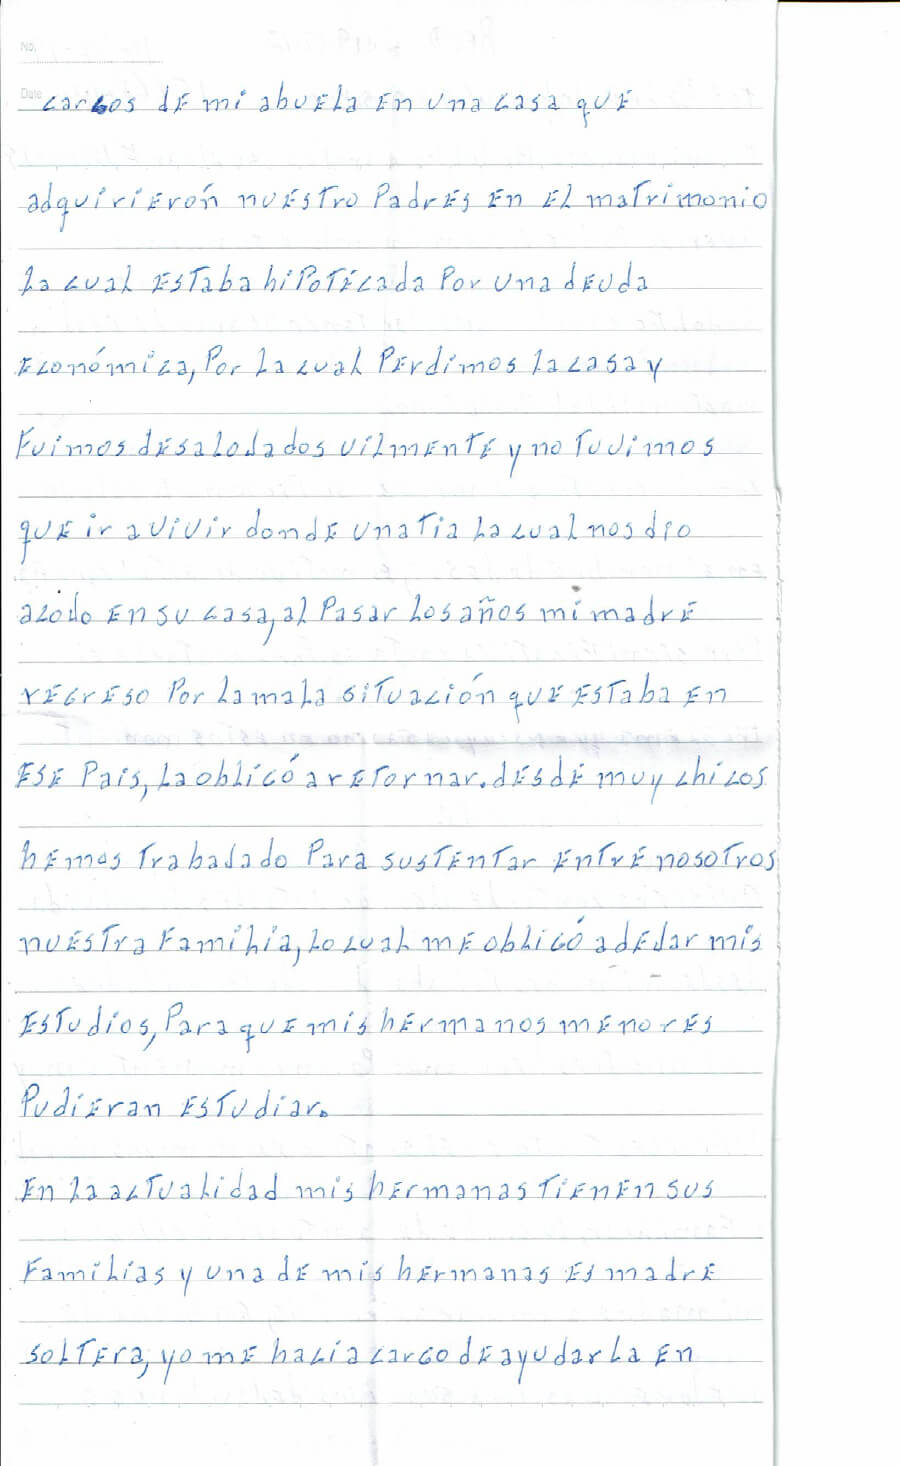 No.
Date
cargos de mi abuela en una casa que
adquirierón nuestro Padres en el matrimonio
la cual estaba hipotécada Por una deuda
económica, Por la cual Perdimos la casa y
Fuimos desalojados vilmente y no tuvimos
que ir a vivir donde una tia la cual nos dio
acojo en su casa, al Pasar los años mi madre
regreso Por la mala situación que estaba en
ese Pais, la obligó a retornar. desde muy chicos
hemos trabajado Para sustentar entre nosotros
nuestra Familia, lo cual me obligó a dejar mis
estudios, Para que mis hermanos menores
Pudieran estudiar.
En la actualidad mis hermanas tienen sus
Familias y una de mis hermanas es madre
soltera, yo me hacia cargo de ayudarla en